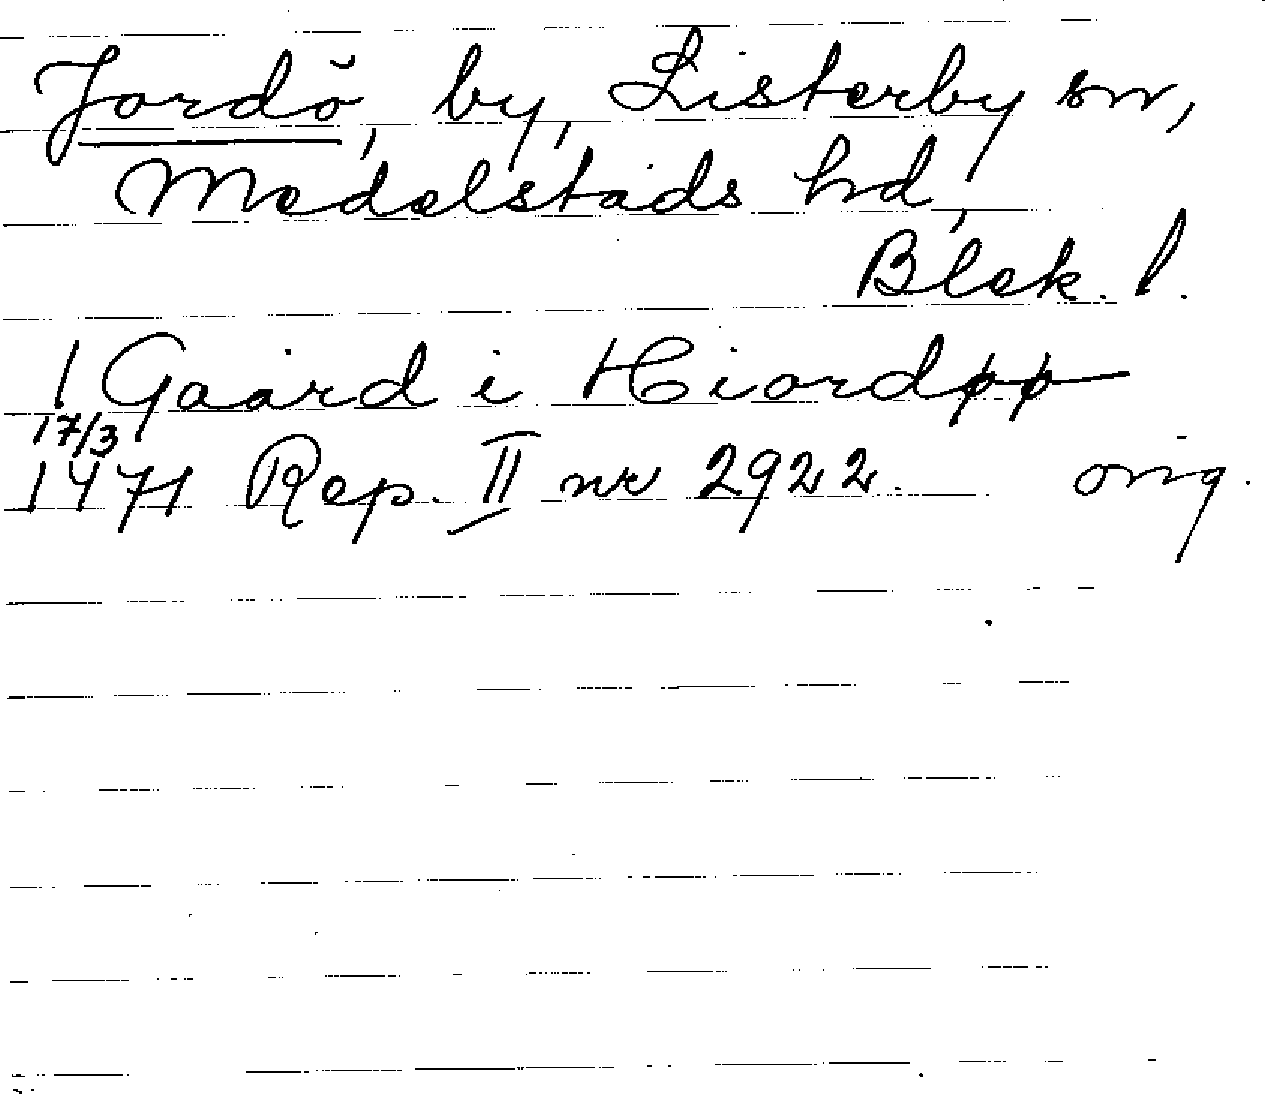 Jordö, by, Listerby sn,
Medelstads hd,
Blek. l.
1 Gaard i Hiordøø
17/3
1471 Rep. II nr 2922. orig.